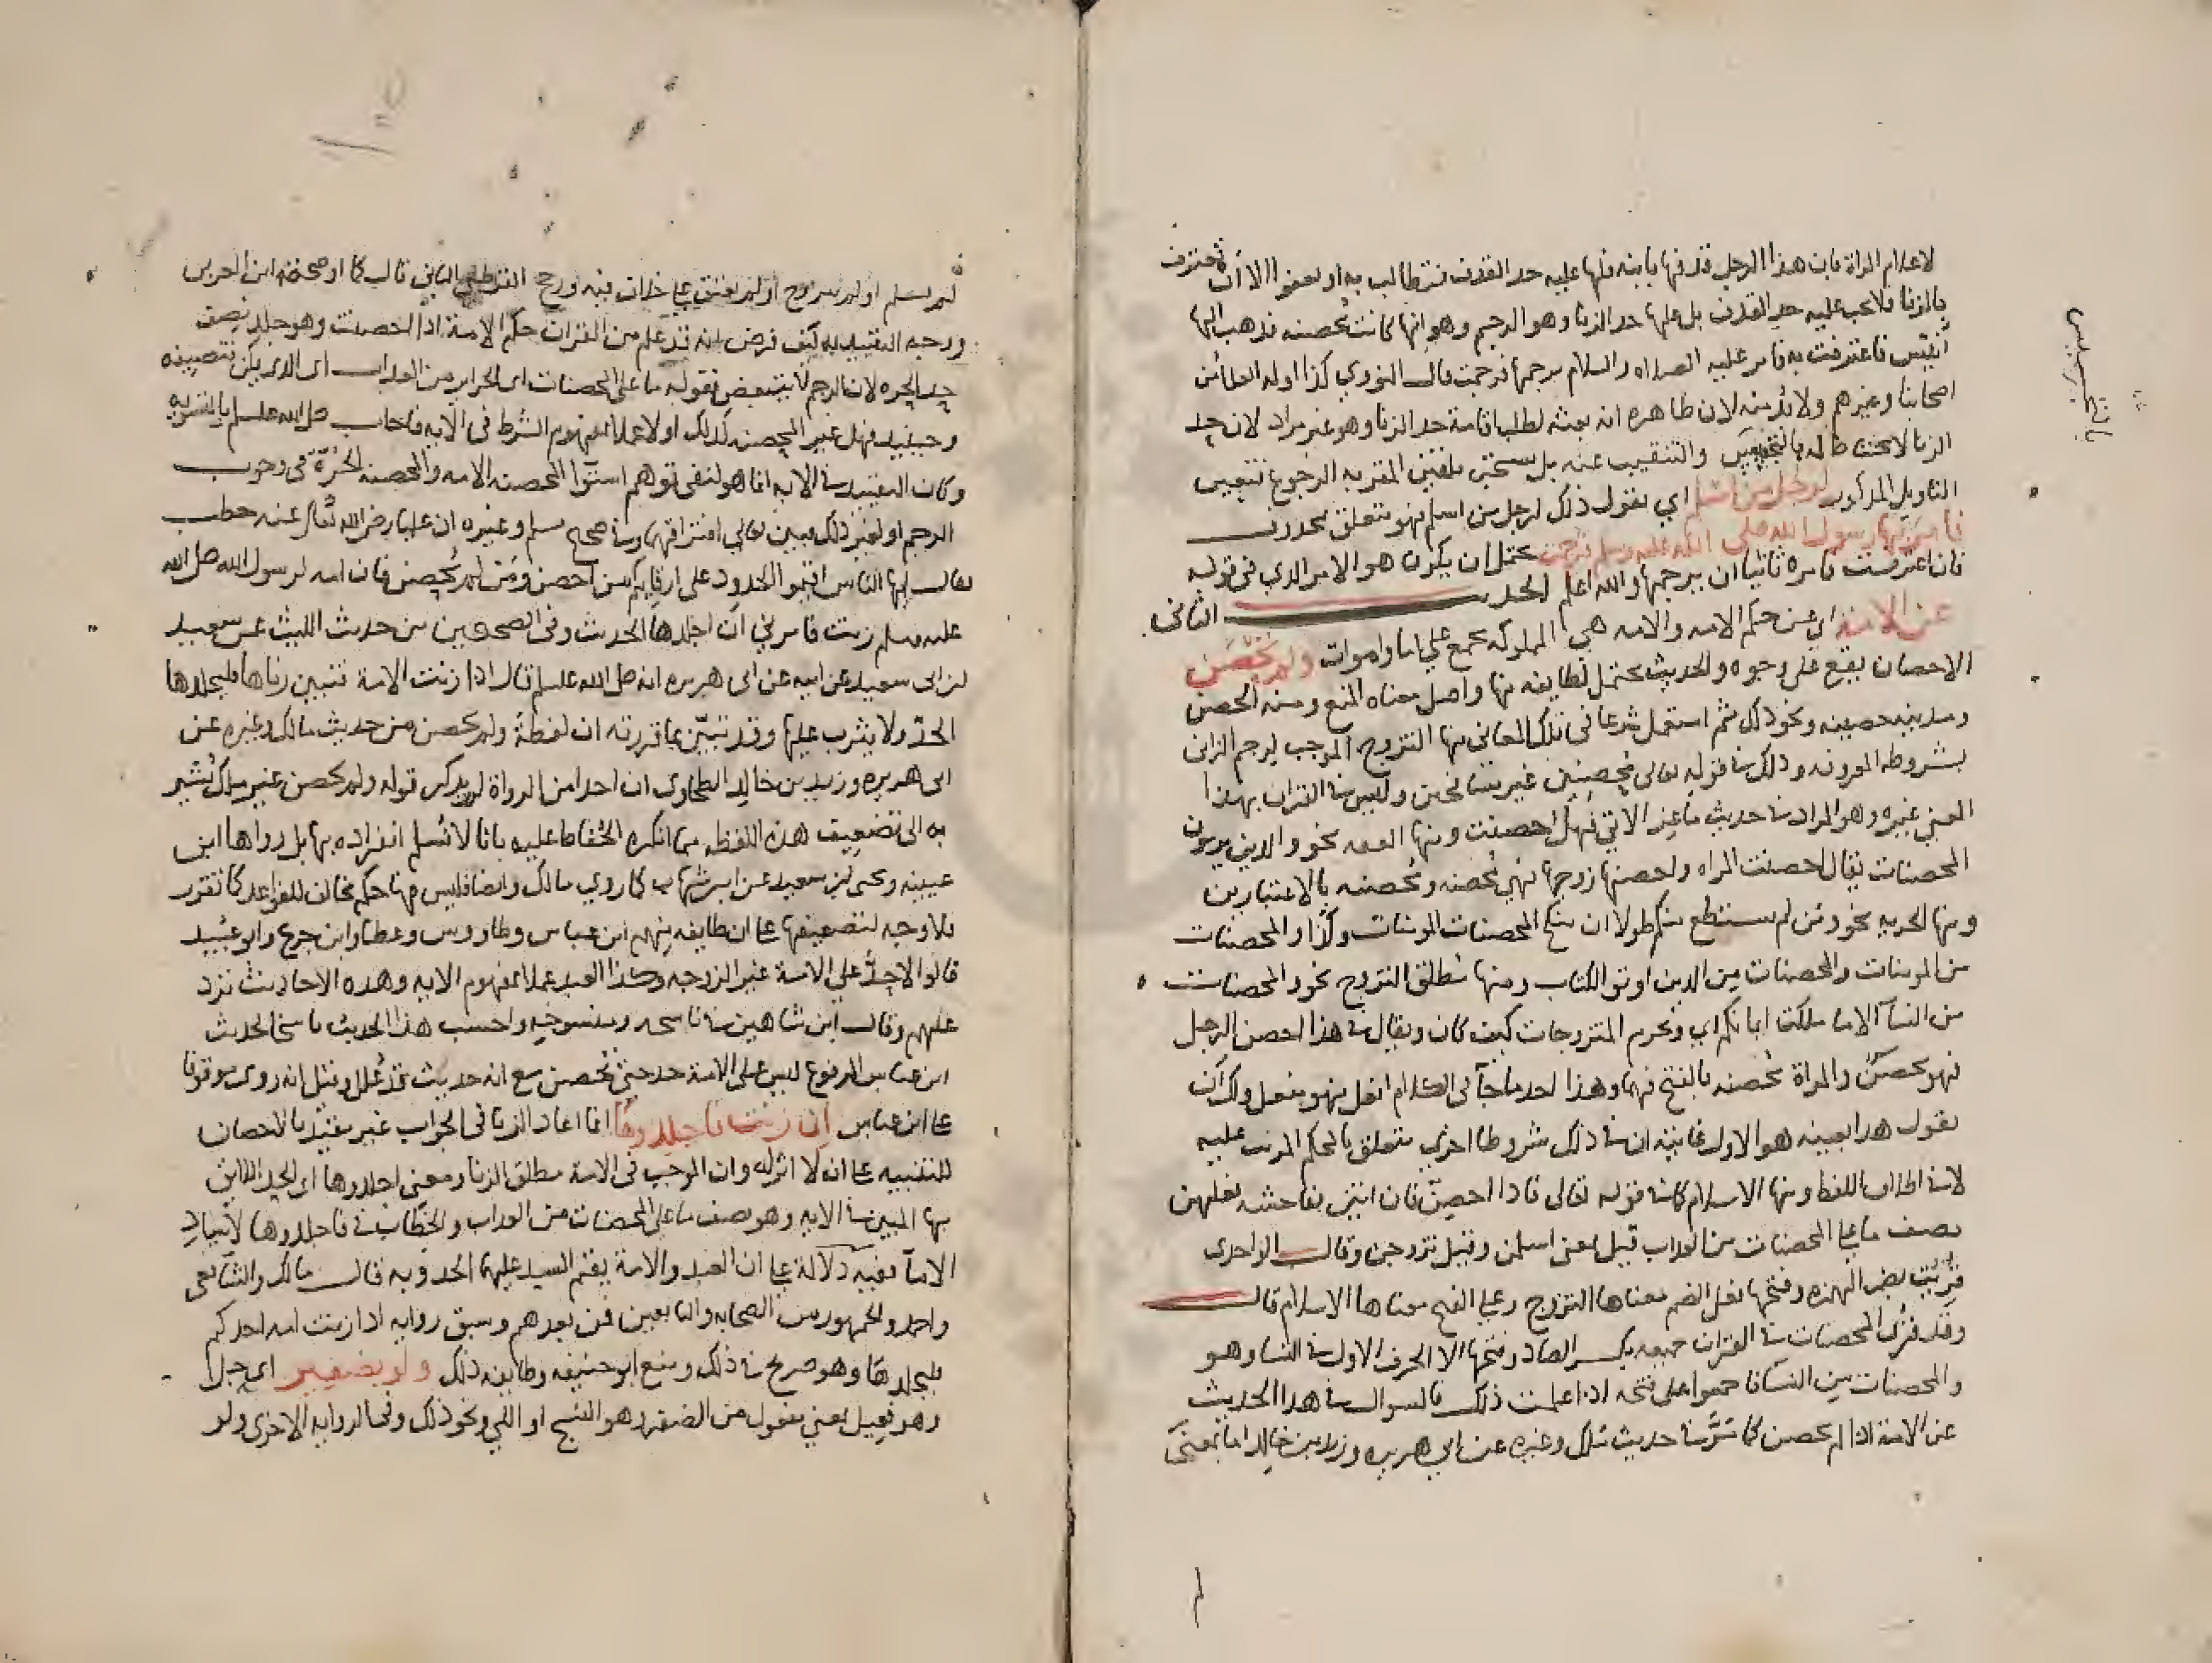 لاعلام المراة بان هذا الرجل قذفها بابنه فلها عليه حد القذف فتطالب به او تعفوا الا ان تعترف
بالزنا فلا يجب عليه حد القذف بل عليها حد الزنا وهو الرجم وهو انها كانت محصنه فذهب اليها
أنيس فاعترفت به فامر عليه الصلاه والسلام برجمها فرجمت قال النووي كذا اوله العلما من
اصحابنا وغيرهم ولا بد منه لان ظاهره انه بعثه لطلب اقامة حد الزنا وهو غير مراد لان حد
الزنا لا يحتاط له بالتجسيس والتنقيب عنه بل يستحق تلقين المقر به الرجوع فتعين
التاويل المذكور لرجل من اسلم اي يقول ذلك لرجل من اسلم فهو متعلق بمحذوف
فامر بها رسول الله صلى الله عليه وسلم فرجمت يحتمل ان يكون هو الامر الذي في قوله
فان اعترفت فامره ثانيا ان يرجمها والله اعلم الحديث الثاني
عن الامة اي عن حكم الامه والامه هي المملوكه تجمع على اما واموات ولم تحصن
الاحصان يقع على وجوه والحديث محتمل لطايفه منها واصل معناه المنع ومنه الحصن
ومدينه حصينه ونحو ذلك ثم استعمل شرعا في تلك المعاني منها التزوج الموجب لرجم الزاني
بشروطه المعروفه وذلك في قوله تعالى محصنين غير مسافحين وليس في القران بهذا
المعنى غيره وهو المراد في حديث ماعز الاتي فهل احصنت ومنها العفه نحو والذين يرمون
المحصنات يقال احصنت المراه واحصنها زوجها فهي محصنه ومحصنه بالاعتبارين
ومنها الحريه نحو ومن لم يستطع منكم طولا ان ينكح المحصنات المومنات وكذا والمحصنات
من المومنات والمحصنات من الذين اوتو الكتاب ومنها مطلق التزوج نحو والمحصنات
من النسآ الا ما ملكت ايمانكم اي وتحرم المتزوجات كيف كان ويقال في هذا احصن الرجل
فهو محصن والمراة محصنه بالفتح فيهما وهذا احد ما جآ في الكلام افعل فهو مفعل ولك ان
تقول هذا بعينه هو الاول غايته ان في ذلك شروطا اخرى تتعلق بالحكم المرتب عليه
لا في اطلاق اللفظ ومنها الاسلام كما في قوله تعالى فاذا احصن فان اتين بفاحشه فعليهن
نصف ما على المحصنات من العذاب قيل يعني اسلمن وقيل تزوجن وقال الواحدي
قريت بضم الهمزه وفتحها فعلى الضم معناها التزوج وعلى الفتح معناها الاسلام قال
وقد قرى المحصنات في القران جميعه بكسر الصاد وفتحها الا الحرف الاول في النسا وهو
والمحصنات من النسآ فاجمعوا على فتحه اذا علمت ذلك فالسوال في هذا الحديث
عن الامة اذا لم تحصن كما في حديث مالك وغيره عن ابي هريره وزيد بن خالد اما بمعنى
بالتجسيس
لم تسلم او لم تتزوج او لم تعتق على خلاف فيه ورجح القرطبي الثاني قال كما اوضحه ابن العربي
ووجه التقييد به كيف فرض انه قد علم من القران حكم الامة اذا احصنت وهو جلد نصف
حد الحره لان الرجم لا يتبعض بقوله ما على المحصنات اي الحراير من العذاب اي الذي يمكن تنصيفه
وحينيذ فهل غير المحصنه كذلك او لا عملا بمفهوم الشرط في الايه فاجاب صلى الله عليه وسلم بالتسويه
وكان التقييد في الايه انما هو لنفي توهم استوا المحصنه الامه والمحصنه الحرة في وجوب
الرجم او لغير ذلك فبين تعالى افتراقهما وفي صحيح مسلم وغيره ان عليا رضي الله تعالى عنه خطب
فقال ايها الناس اقيموا الحدود على ارقايكم من احصن ومن لم يحصن فان امه لرسول الله صلى الله
عليه وسلم زنت فامرني ان اجلدها الحديث وفي الصحيحين من حديث الليث عن سعيد
بن ابي سعيد عن ابيه عن ابي هريره انه صلى الله عليه وسلم قال اذا زنت الامة فتبين زناها فليجلدها
الحد ولا يثرب عليها وقد تبين بما قررته ان لفظة ولم تحصن من حديث مالك وغيره عن
ابي هريره وزيد بن خالد الطحاوى ان احدا من الرواة لم يذكر قوله ولم تحصن غير مالك يشير
به الى تضعيف هذه اللفظه مما انكره الحفاظ عليه بانا لا نسلم انفراده بها بل رواها ابن
عيينه ويحيى بن سعيد عن ابن شهاب كما روي مالك وايضا فليس فيها حكم مخالف للقواعد كما تقرر
فلا وجه لتضعيفها على ان طايفه منهم ابن عباس وطاووس وعطا وابن جريج وابو عبيد
قالوا لا حد على الامة غير الزوجه وكذا العبد عملا بمفهوم الايه وهذه الاحاديث ترد
عليهم وقال ابن شاهين في ناسخه ومنسوخه واحسب هذا الحديث ناسخا لحديث
ابن عباس المرفوع ليس على الامة حد حتى تحصن مع انه حديث قد علل وقيل انه روى موقوفا
على ابن عباس ان زنت فاجلدوها انما اعاد الزنا في الجواب غير مقيد بالاحصان
للتنبيه على ان لا اثر له وان الموجب في الامة مطلق الزنا ومعنى اجلدوها اى الحد اللايق
بها المبين في الايه وهو نصف ما على المحصنات من العذاب والخطاب في فاجلدوها لاسياد
الامآ ففيه دلالة على ان العبد والامة يقيم السيد عليهما الحد وبه قال مالك والشافعي
واحمد والجمهور من الصحابه والتابعين فمن بعدهم وسبق روايه اذا زنت امه احدكم
فليجلدها وهو صريح في ذلك ومنع ابو حنيفه وطايفه ذلك ولو بضفير اي حبل
وهو فعيل بمعنى مفعول من الضفر وهو النسج او اللي ونحو ذلك وفي الروايه الاخرى ولو